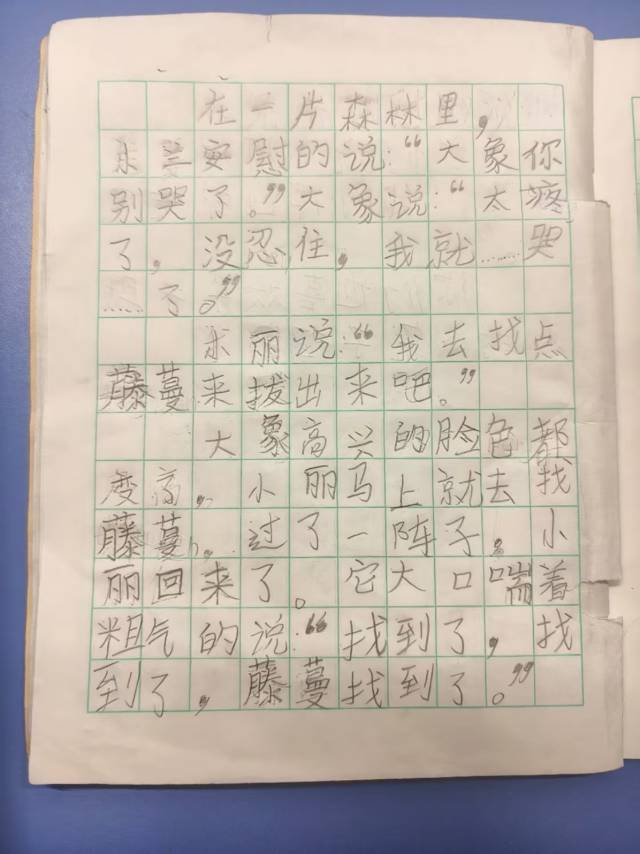 在一片森林里，
安慰的说：“大象你
别哭了。”大象说：“太疼
了，没忍住，我就……哭
……了。”
丽说：“我去找点
藤蔓来拔出来吧。”
大象高兴的脸色都
变高，小丽马上就去找
藤蔓，过了一阵子。小
丽回来了。它大口喘着
粗气的说：“找到了，找
到了，藤蔓找到了。”